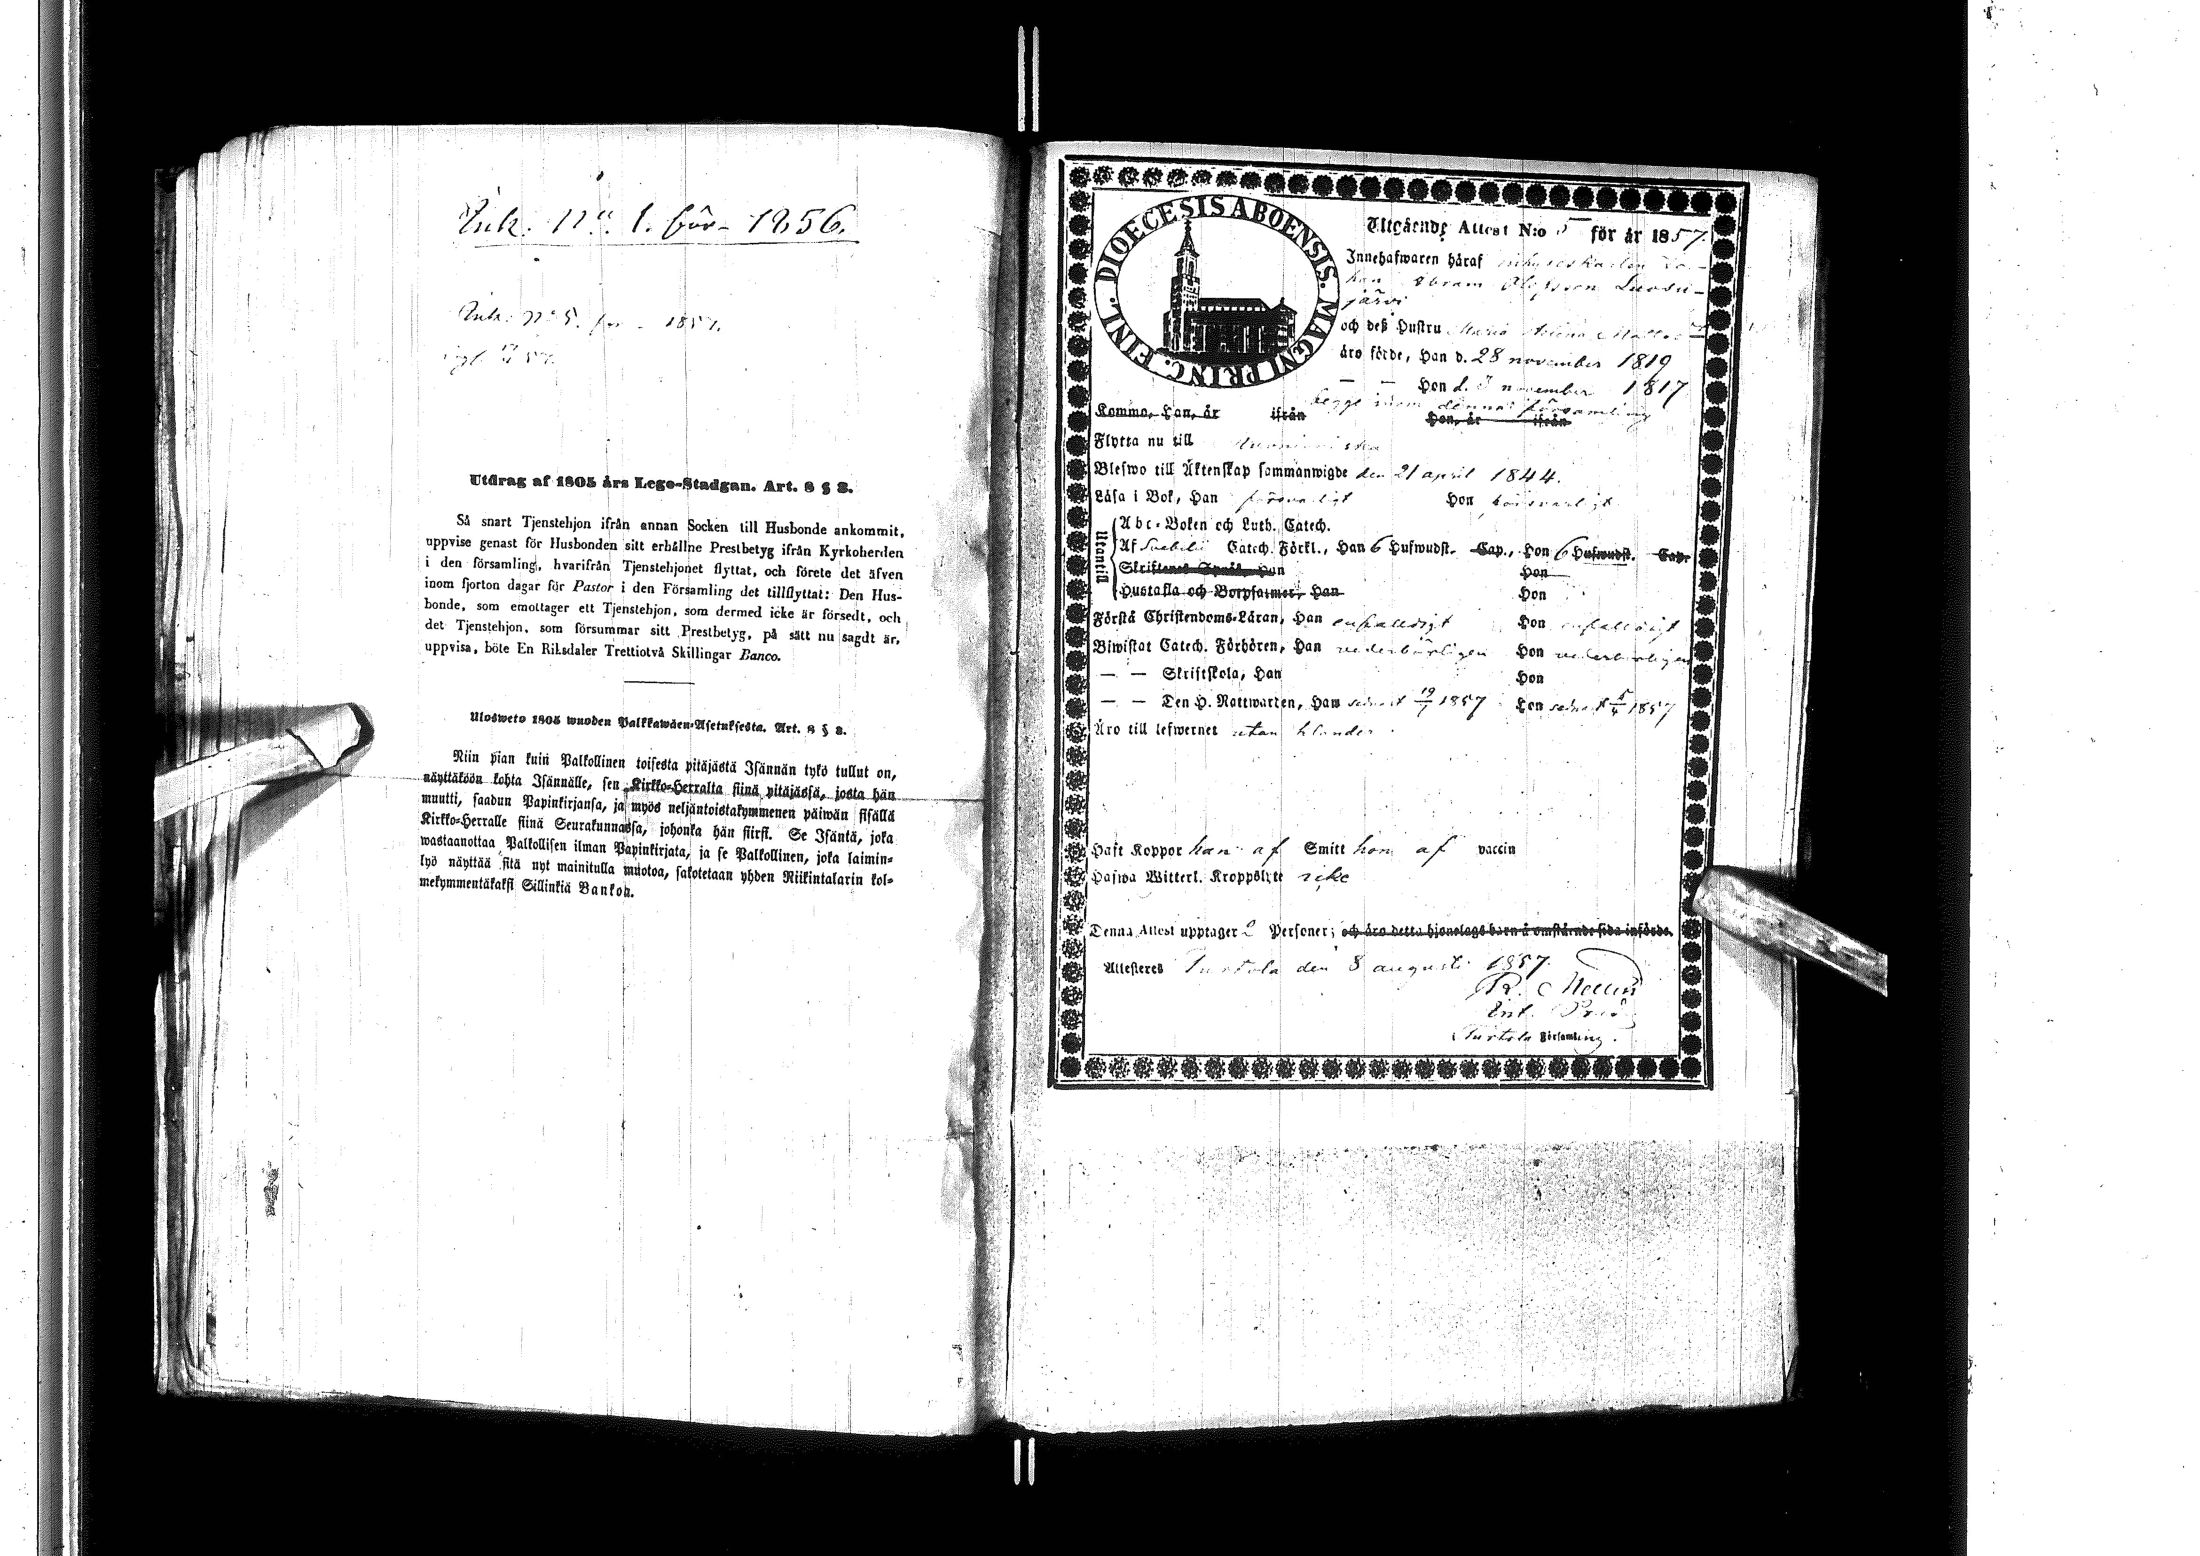 Ink. No. 1. för 1856.
Ink. No 5. för 1857.
Utdrag af 1805 års Lego-Stadgan. Art. 8 § 3.
Så snart Tjenstehjon ifrån annan Socken till Husbonde ankommit,
uppvise genast för Husbonden sitt erhållne Prestbetyg ifrån Kyrkoherden
i den församling, hvarifrån Tjenstehjonet flyttat, och förete det äfven
inom fjorton dagar för Pastor i den Församling det tillflyttat: Den Hus-
bonde, som emottager ett Tjenstehjon, som dermed icke är försedt, och
det Tjenstehjon, som försummar sitt Prestbetyg, på sätt nu sagdt är,
uppvisa, böte En Riksdaler Trettiotvå Skillingar Banco.
Ulosweto 1805 wuoden Palkkawäen-Asetuksesta. Art. 8 § 3.
Niin pian kuin Palkollinen toisesta pitäjästä Isännän tykö tullut on,
näyttäköön kohta Isännälle, sen Kirkko-Herralta siinä pitäjässä, josta hän
muutti, saadun Papinkirjansa, ja myös neljäntoistakymmenen päiwän sisällä
Kirkko-Herralle siinä Seurakunnassa, johonka hän siirsi. Se Isäntä, joka
wastaanottaa Palkollisen ilman Papinkirjata, ja se Palkollinen, joka laimin-
lyö näyttää sitä nyt mainitulla muotoa, sakotetaan yhden Riikintalarin kol-
mekymmentäkaksi Sillinkiä Bankoh.
DIOECESIS ABOENSIS. MAGNI PRINC. FINL.
Utgående Attest N:o 5 för år 1857.
Innehafwaren häraf inhyseskarlen Jo-
han Abram Olofsson Luosu-
järvi
och deß Hustru Maria
äro födde, Han d. 28 november 1819
— — Hon d. november 1817
begge inom denna församling
Komma, Han, år ifrån Hon, år ifrån
Flytta nu till
Blefwo till Äktenskap sammanwigde den 21 april 1844.
Läsa i Bok, Han försvarligt Hon försvarligt
Utantill
Abc-Boken och Luth. Catech.
Af Svebelii Catech. Förkl., Han 6 Hufwudst. Cap., Hon 6 Hufwudst. Cap.
Skriftenes Språk, Han Hon
Hustafla och Botpsalmer, Han Hon
Förstå Christendoms-Läran, Han enfaldigt Hon enfaldigt
Biwistat Catech. Förhören, Han vederbörligen Hon vederbörligen
— — Skriftskola, Han Hon
— — Den H. Nattwarden, Han senast 19/7 1857 Hon senast 1857
Äro till lefwernet utan klander.
Haft Koppor han af Smitt hon af vaccin
Hafwa Witterl. Kroppslyte icke
Denna Attest upptager 2 Personer; och äro detta hjonelags barn å omstående sida införde.
Attesteras Turtola den 8 augusti 1857.
Turtola Församling.